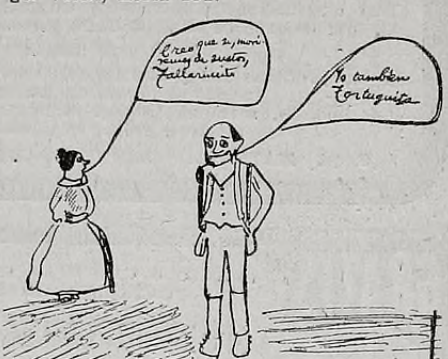 Creo que si, mori
remos de sustos,
Tallarincito
Yo también
Tortuguita